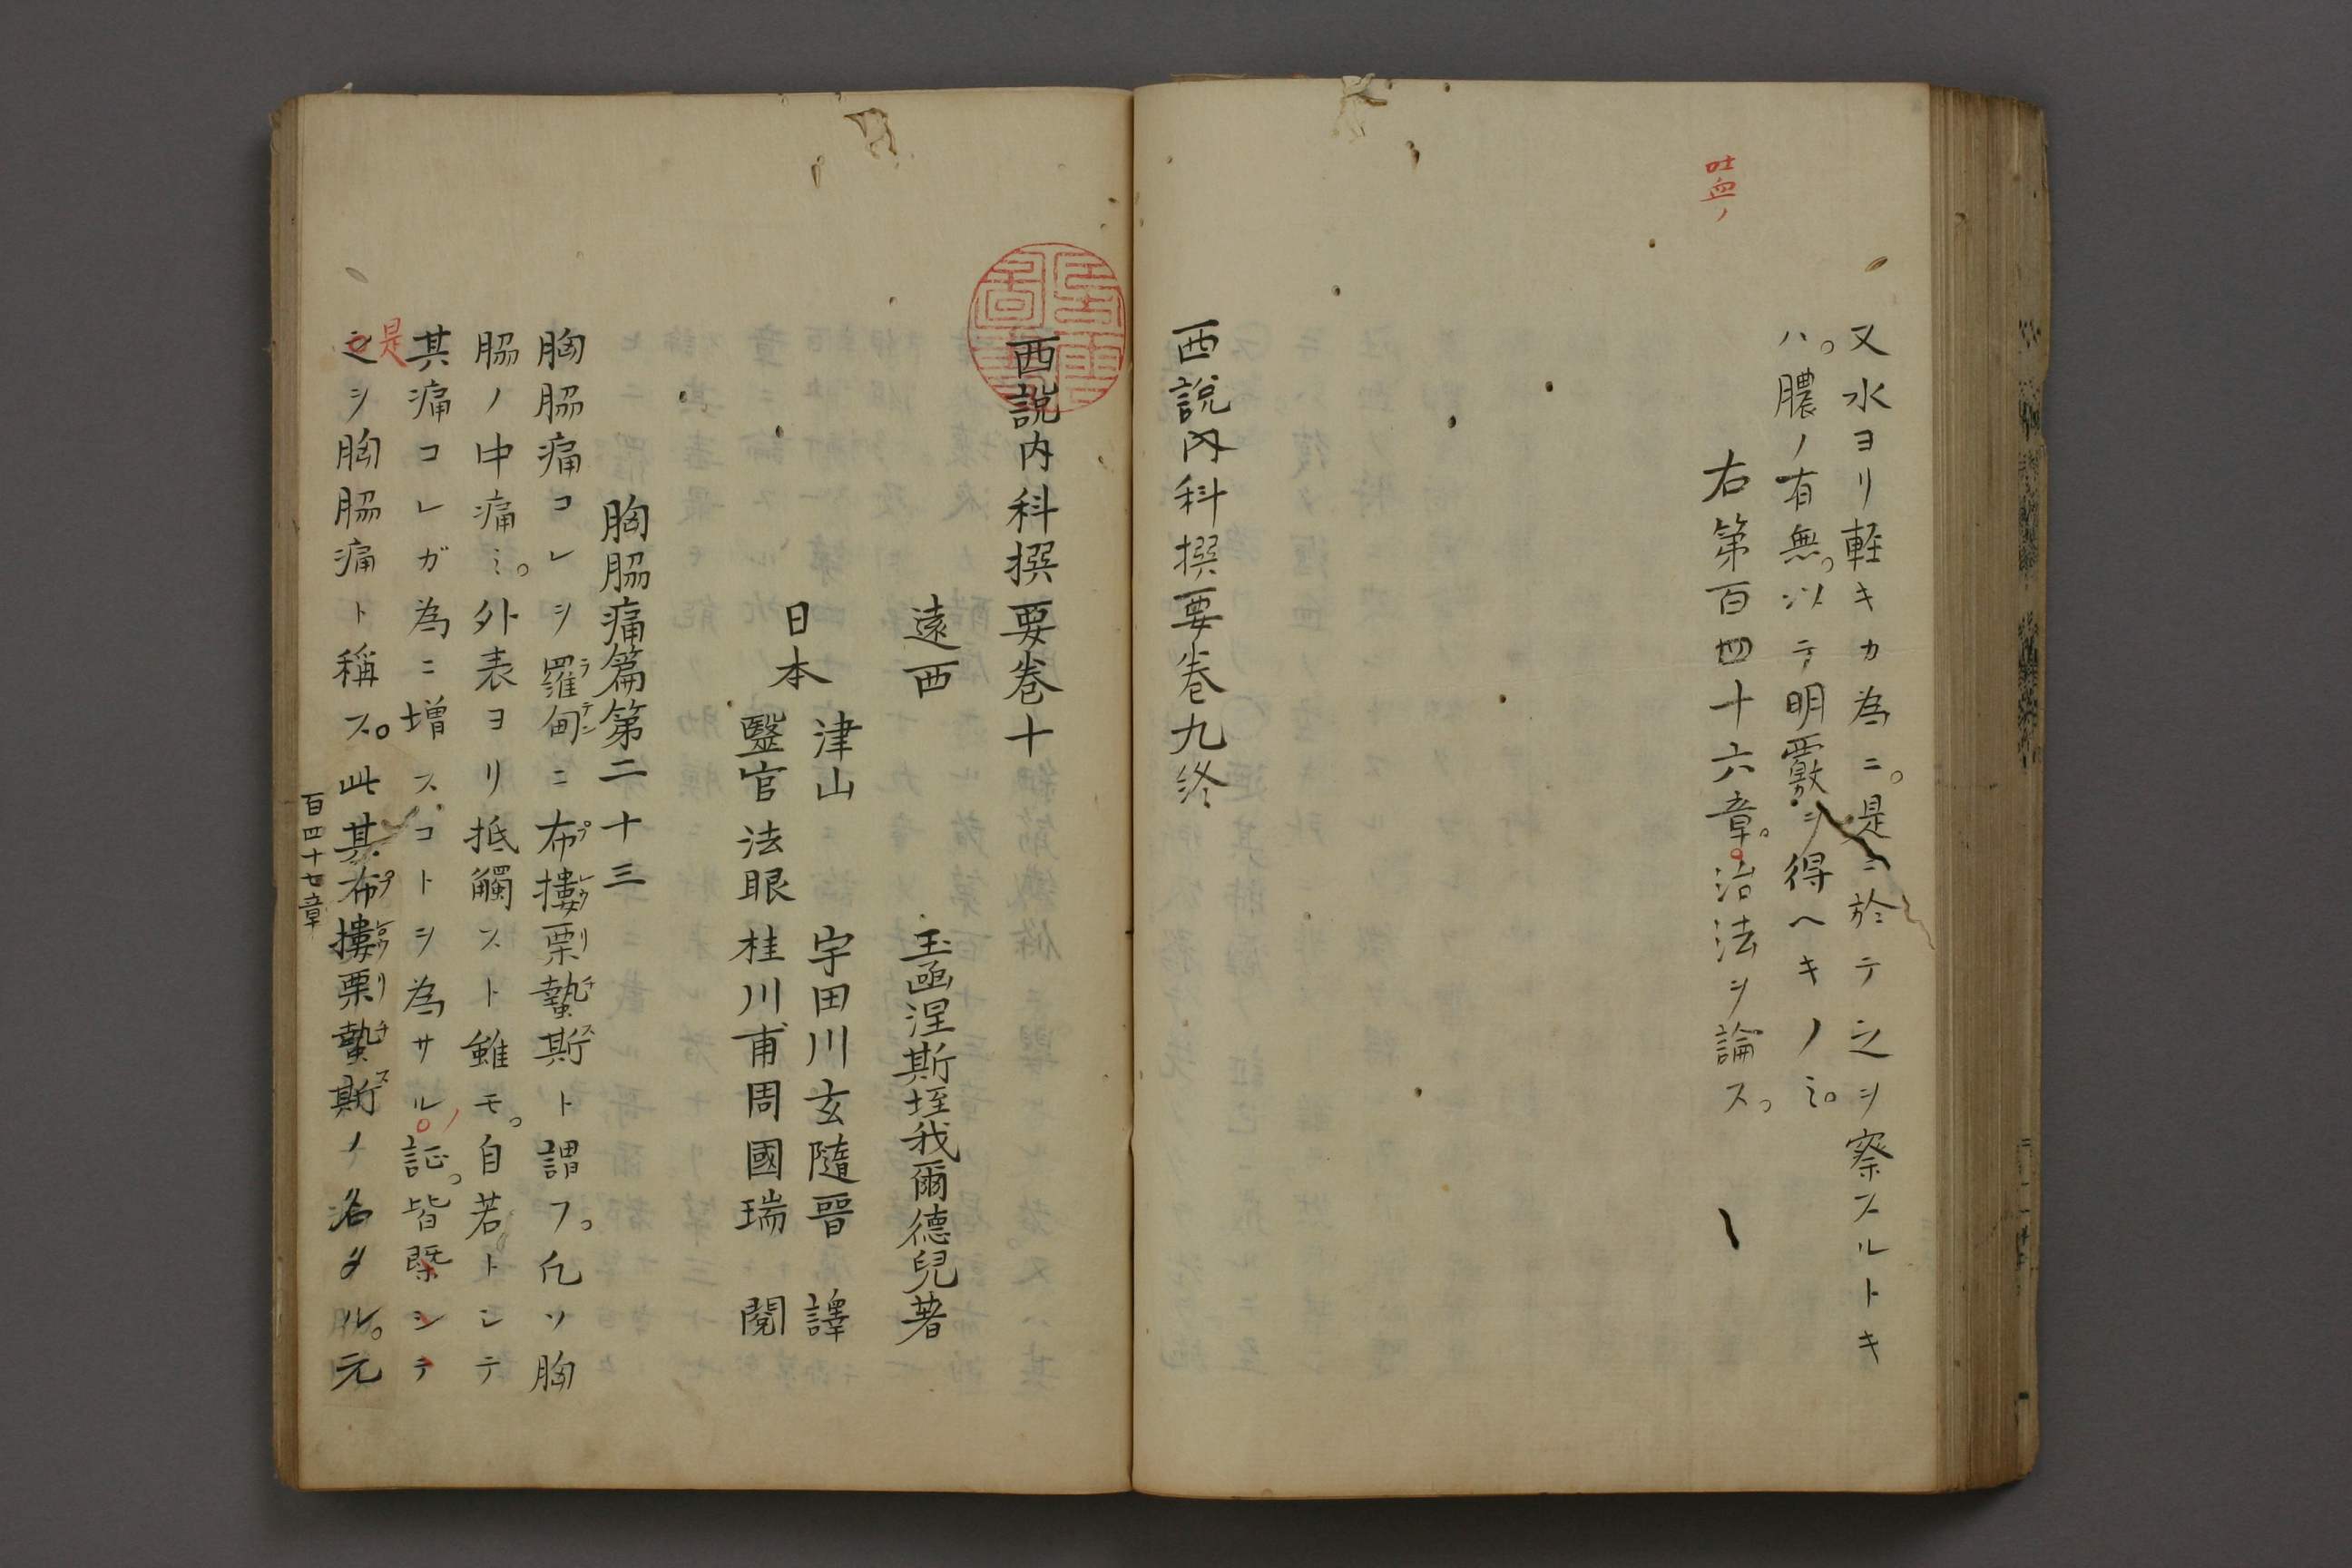 吐血ノ
又水ヨリ軽キカ為ニ。是ニ於テ之ヲ察スルトキ
ハ。膿ノ有無。以テ明覈ヲ得ヘキノミ。
右第百四十六章。治法ヲ論ス。
西說内科撰要巻九終
西說内科撰要巻十
遠西 玉函涅斯垤我爾德兒著
日本
津山 宇田川玄隨晉 譯
毉官法眼桂川甫周國瑞 閲
胸脇痛篇第二十三
胸脇痛コレヲ羅甸ラテンニ布摟栗蟄斯プレウリチスト謂フ。凢ソ胸
脇ノ中痛ミ。外表ヨリ抵觸スト雖モ。自若トシテ
其痛コレガ為ニ増スコトヲ為サル。証。皆既シテ
是
之ヲ胸脇痛ト稱ス。此其布摟栗蟄斯プレウリチスノ名タル。元
百四十七章